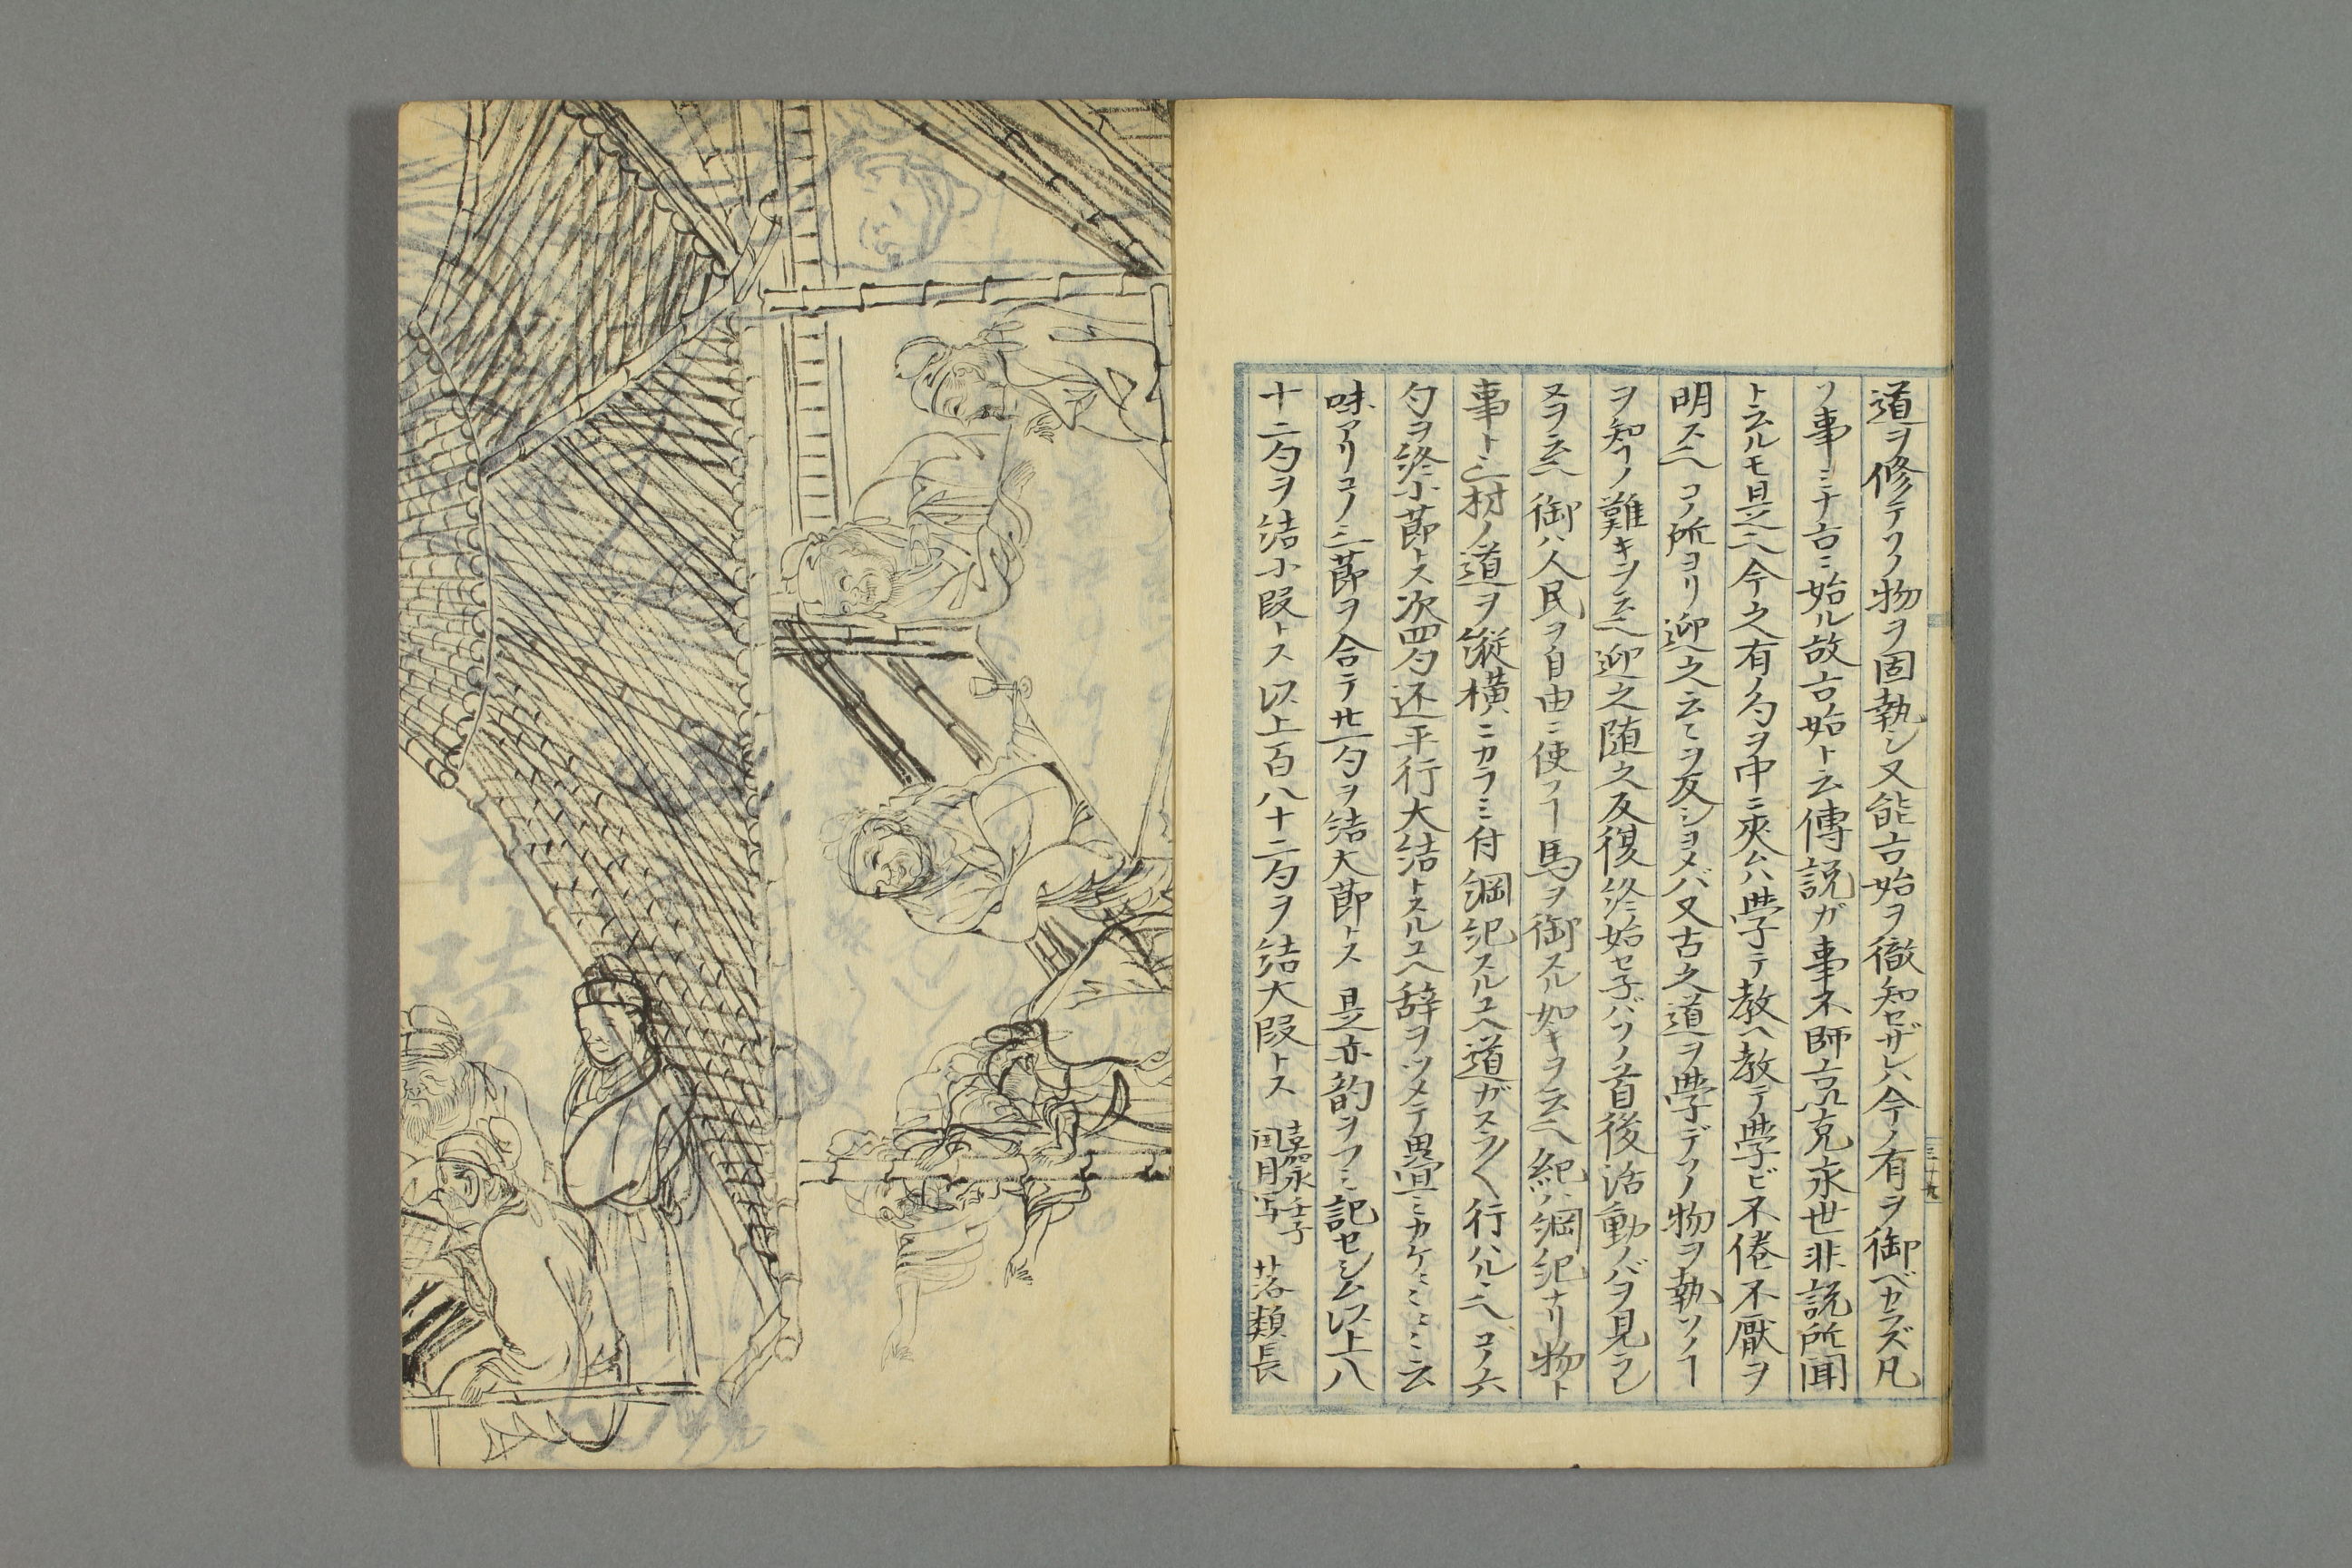 道ヲ修テソノ物ヲ固執シ又能古始ヲ徹知セザレハ今ノ有ヲ御ベカラズ凡
ソ事ミナ古ニ始ル故古始ト云傳説ガ事不師古以克永世非説所聞
ト云ルモ是之今之有ノ勺ヲ中ニ夾ムハ學テ教ヘ教テ學ビ不倦不厭ヲ
明ス也コノ所ヨリ迎之云々ヲ反シヨメバ又古之道ヲ學デソノ物ヲ執ソノ
ヲ知ヿノ難キヲ云迎之随之反復終始セ子バソノ首後活動ノバヲ見ラレ
ヌヲ云 御ハ人民ヲ自由ニ使フヿ馬ヲ御スル如キヲ云紀ハ綱紀ナリ物ト
事ト三材ノ道ヲ縦横ニカラミ付綱紀スルユヘ道ガスラ〱行ハルヽ也コノ六
勺ヲ終小節トス次四勺还平行大結トスルユヘ辞ヲツメテ畳ミカケヽミヽミ云
味アリコノ三節ヲ合テ廿一勺ヲ結大節トス 是亦韵ヲフミ記セシム以上八
十二勺ヲ結小段トス以上百八十二勺ヲ結大段トス
嘉永壬子
閏月写 落類長
三十九